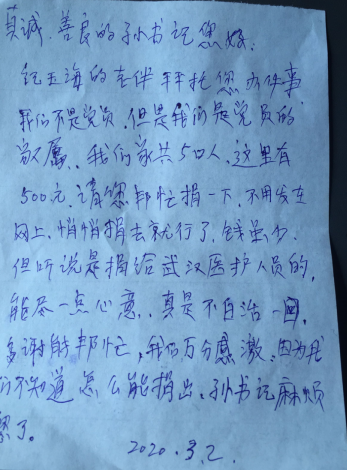 真诚、善良的孙书记您好、
纪玉海的老伴拜托您办件事
我们不是党员、但是我们是党员的
家属、我们家共5口人、这里有
500元、请您邦忙捐一下、不用发在
网上、悄悄捐去就行了、钱虽少、
但听说是捐给武汉医护人员的,
能尽一点心意、真是不白活一回,
多谢邦忙,我们万分感激、因为我
们不知道怎么能捐出、孙书记麻烦
您了。
2020.3.2.